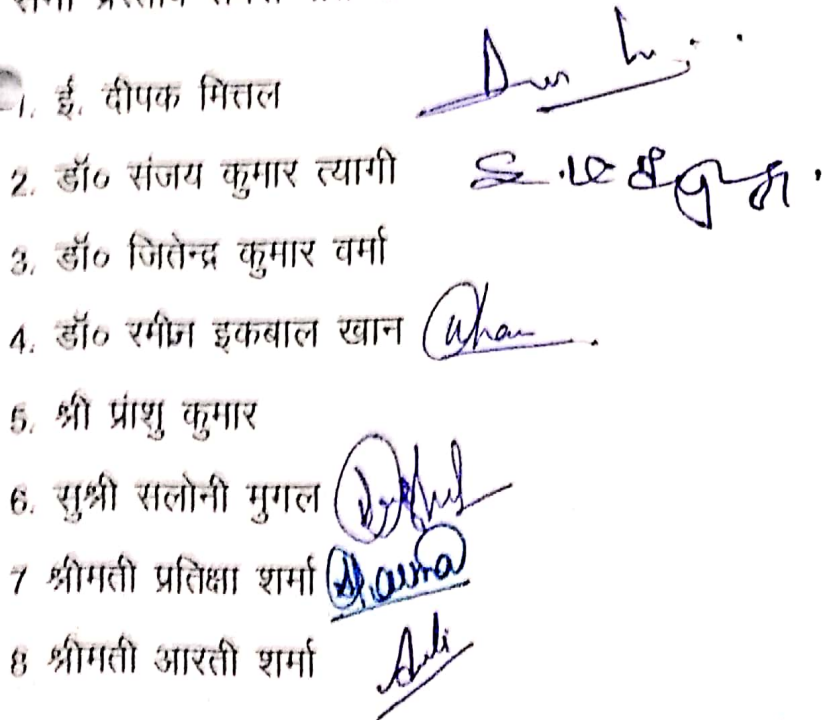 1. ई. दीपक मित्तल
2. डॉ० संजय कुमार त्यागी
3. डॉ० जितेन्द्र कुमार वर्मा
4. डॉ० रमीज इकबाल खान Khan
5. श्री प्रांशु कुमार
6. सुश्री सलोनी मुगल
7 श्रीमती प्रतिक्षा शर्मा Sharma
8 श्रीमती आरती शर्मा